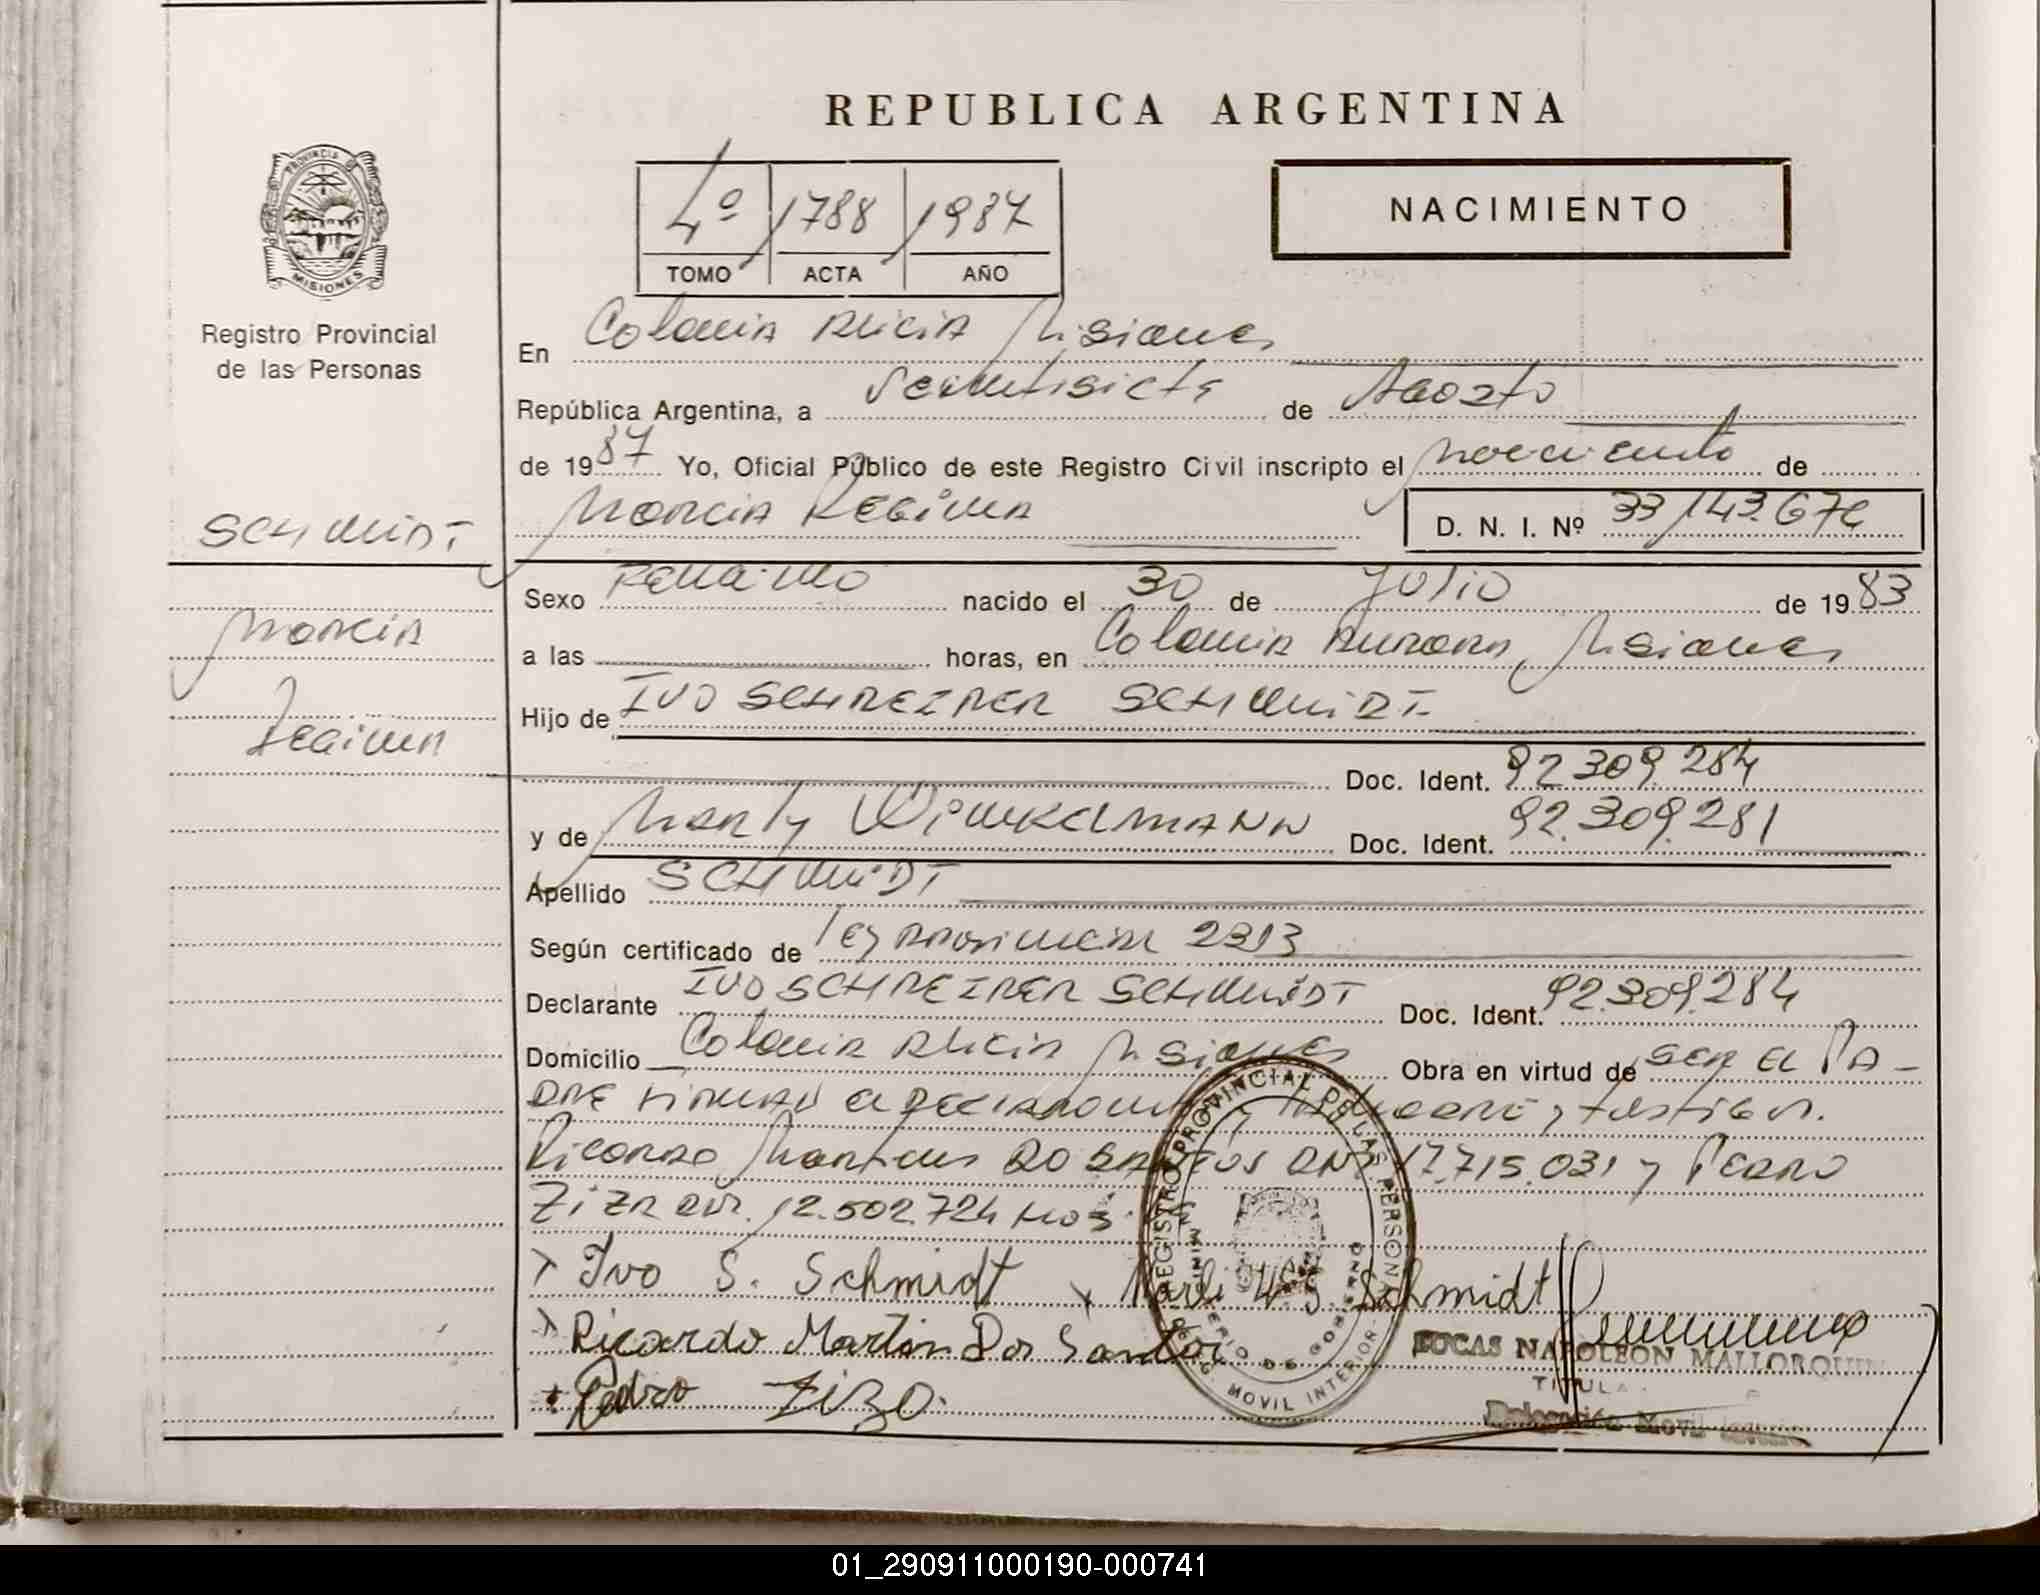 REPUBLICA ARGENTINA
PROVINCIA DE
MISIONES
Registro Provincial
de las Personas
4º 1788 1987
TOMO ACTA AÑO
NACIMIENTO
En Colonia Alicia Misiones
República Argentina, a Veintisiete de Agosto
de 1987 Yo, Oficial Público de este Registro Civil inscripto el nacimiento de
Marcia Regina
D. N. I. Nº 33.143.67
SCHMIDT
Marcia
Regina
Sexo Femenino nacido el 30 de Julio de 1983
a las horas, en Colonia Aurora, Misiones
Hijo de IVO SCHREIBER SCHMIDT.
Doc. Ident. 92.309.284
y de Marly WINKELMANN Doc. Ident. 92.309.281
Apellido SCHMIDT
Según certificado de ley provincial 2313
Declarante IVO SCHREIBER SCHMIDT Doc. Ident. 92.309.284
Domicilio Colonia Alicia Misiones Obra en virtud de ser el PA-
DRE firman el declarante y testigos.
Ricardo Martins DO SANTOS DNI 17.715.031 y Pedro
12.502.724
Ivo S. Schmidt Marli W. S. Schmidt
Ricardo Martin Dos Santos
Pedro
REGISTRO PROVINCIAL DE LAS PERSONAS
MINISTERIO DE GOBIERNO
DELEG. MOVIL INTERIOR
LUCAS NAPOLEON MALLORQUIN
TITULAR
Delegación Movil Interior
01_290911000190-000741